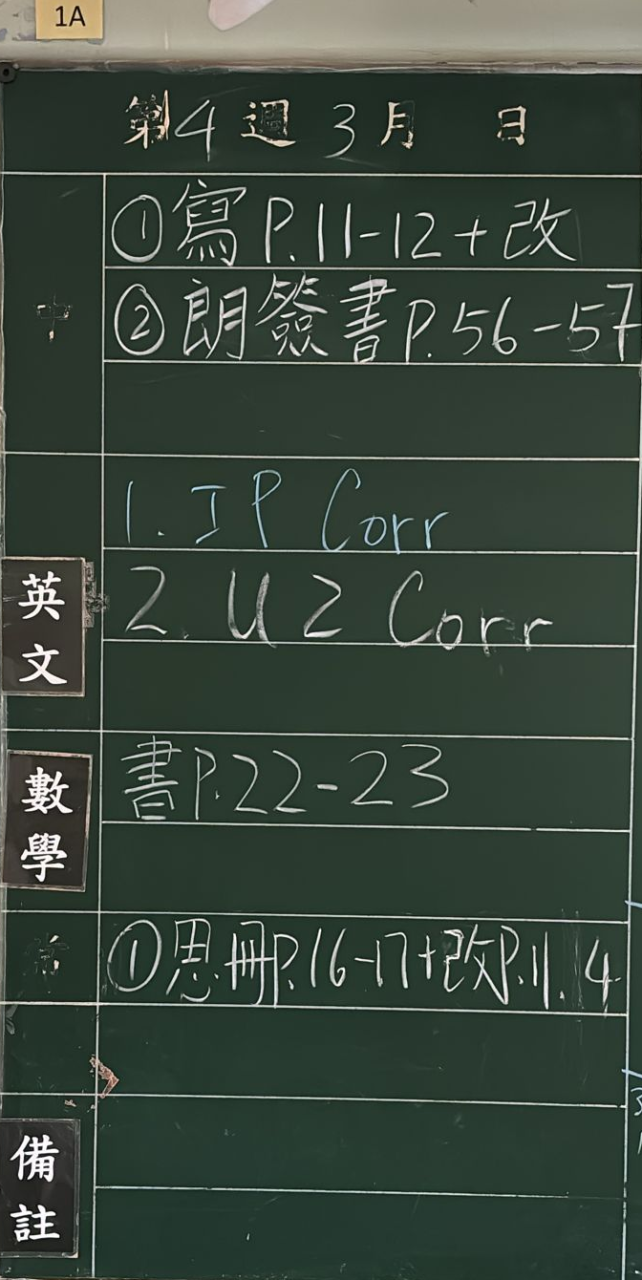 1A
第4週3月 日
中
①寫P.11-12+改
②朗簽書P.56-57
英文
1. IP Corr
2. U2 Corr
數學
書P.22-23
常
①思冊P.16-17+改P.11.4
備註